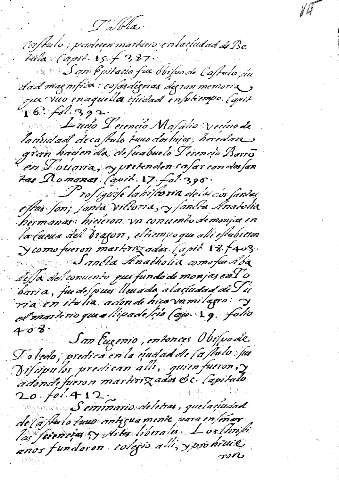 Tabla
Castulo, padecen martirio en la ciudad de Be
tula. Capit. 15. f. 387.
San Epitacio fue Obispo de Castulo, ciu
dad magnifica: cosas dignas de gran memoria,
que vuo en aquella ciudad en su tiempo. Capit
16. fol. 392.
Lucio Terencio vecino de
la ciudad de Castulo tuuo dos hijos, heredan
gran hacienda de su abuelo Terencio
en Touaria, y pretenden casar con dos san
tas Romanas. Capit. 17. fol. 395.
Prosiguese la historia de santas
estas son, santa Vittoria, y santa Anatholia
hermanas: hicieron vn conuento de monjas en
la cueua del Dragon, el tiempo que alli estubieron
y como fueron martirizadas. Capit. 18. f. 403.
Sancta Anatholia como fue Aba
dessa del conuento que fundo de monjas en To
baria, fue despues lleuada a la ciudad de Tu
ria en italia adonde hizo vn milagro: y
el martirio que alli padescio Cap. 19. folio
408.
San Eugenio, entonces Obispo de
Toledo, predica en la ciudad de Castulo: sus
Discipulos predican alli, quien fueron, y
adonde fueron martirizados &c. Capitulo
20. fol. 412.
Seminario de letras, que la ciudad
de Castulo tuuo antiguamente para enseñar
las sciencias y Artes liberales. Los
anos fundaron colegio alli, y
ron